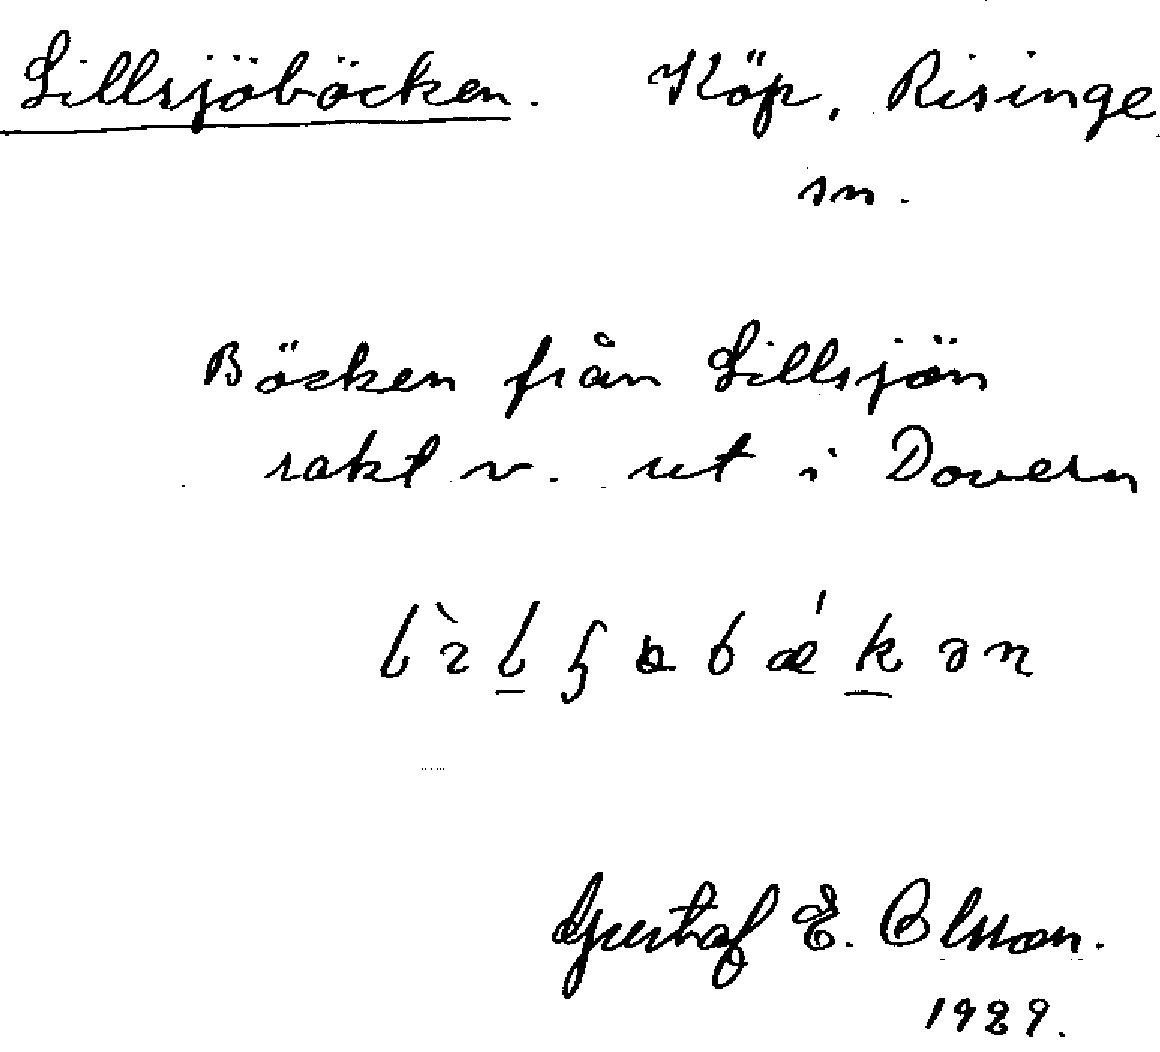 Lillsjöbäcken. Köp, Risinge
sn.
Bäcken från Lillsjön
rakt v. ut i Dovern
Gustaf E. Olsson.
1929.